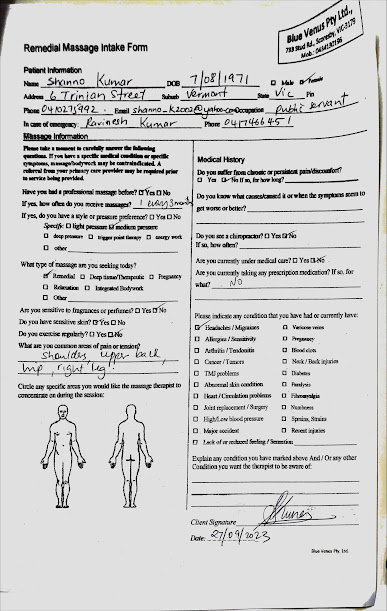 Blue Venus Pty Ltd.,
Remedial Massage Intake Form
Patient Information
Name Shanno Kumar DOB 7/08/1971 Male Female
Address 6 Trinian Street Suburb Vermont State Vic Pin
Phone Email Occupation public servant
In case of emergency: Ravinesh Kumar Phone
Massage Information
Please take a moment to carefully answer the following
questions. If you have a specific medical condition or specific
symptoms, massage/bodywork may be contraindicated. A
referral from your primary care provider may be required prior
to service being provided.
Have you had a professional massage before? Yes No
If yes, how often do you receive massages?
If yes, do you have a style or pressure preference? Yes No
Specific: light pressure medium pressure
deep pressure trigger point therapy energy work
other
What type of massage are you seeking today?
Remedial Deep tissue/Therapeutic Pregnancy
Relaxation Integrated Bodywork
Other
Are you sensitive to fragrances or perfumes? Yes No
Do you have sensitive skin? Yes No
Do you exercise regularly? Yes No
What are you common areas of pain or tension?
Shoulder, upper back,
hip, right leg.
Circle any specific areas you would like the massage therapist to
concentrate on during the session:
Medical History
Do you suffer from chronic or persistent pain/discomfort?
Yes No If so, for how long?
Do you know what causes/caused it or when the symptoms seem to
get worse or better?
Do you see a chiropractor? Yes No
If so, how often?
Are you currently under medical care? Yes No
Are you currently taking any prescription medication? If so, for
what? NO
Please indicate any condition that you have had or currently have:
Headaches / Migraines Varicose veins
Allergies / Sensitivity Pregnancy
Arthritis / Tendonitis Blood clots
Cancer / Tumors Neck / Back injuries
TMJ problems Diabetes
Abnormal skin condition Paralysis
Heart / Circulation problems Fibromyalgia
Joint replacement / Surgery Numbness
High/Low blood pressure Sprains, Strains
Major accident Recent injuries
Lack of or reduced feeling / Sensation
Explain any condition you have marked above And / Or any other
Condition you want the therapist to be aware of:
Client Signature
Date: 27/09/2023
Blue Venus Pty. Ltd.